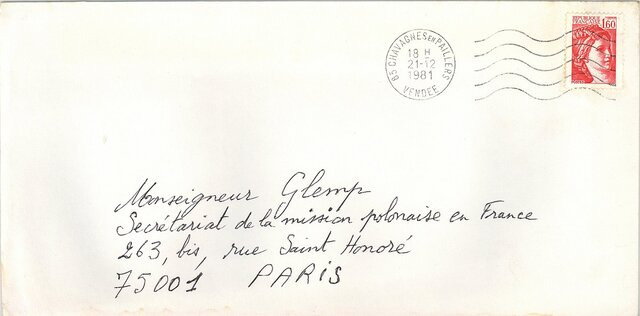 85 CHAVAGNES EN PAILLERS
18 H
21-12
1981
VENDEE
1,60
Monseigneur Glemp
Secrétariat de la mission polonaise en France
263, bis, rue Saint Honoré
75001 PARIS